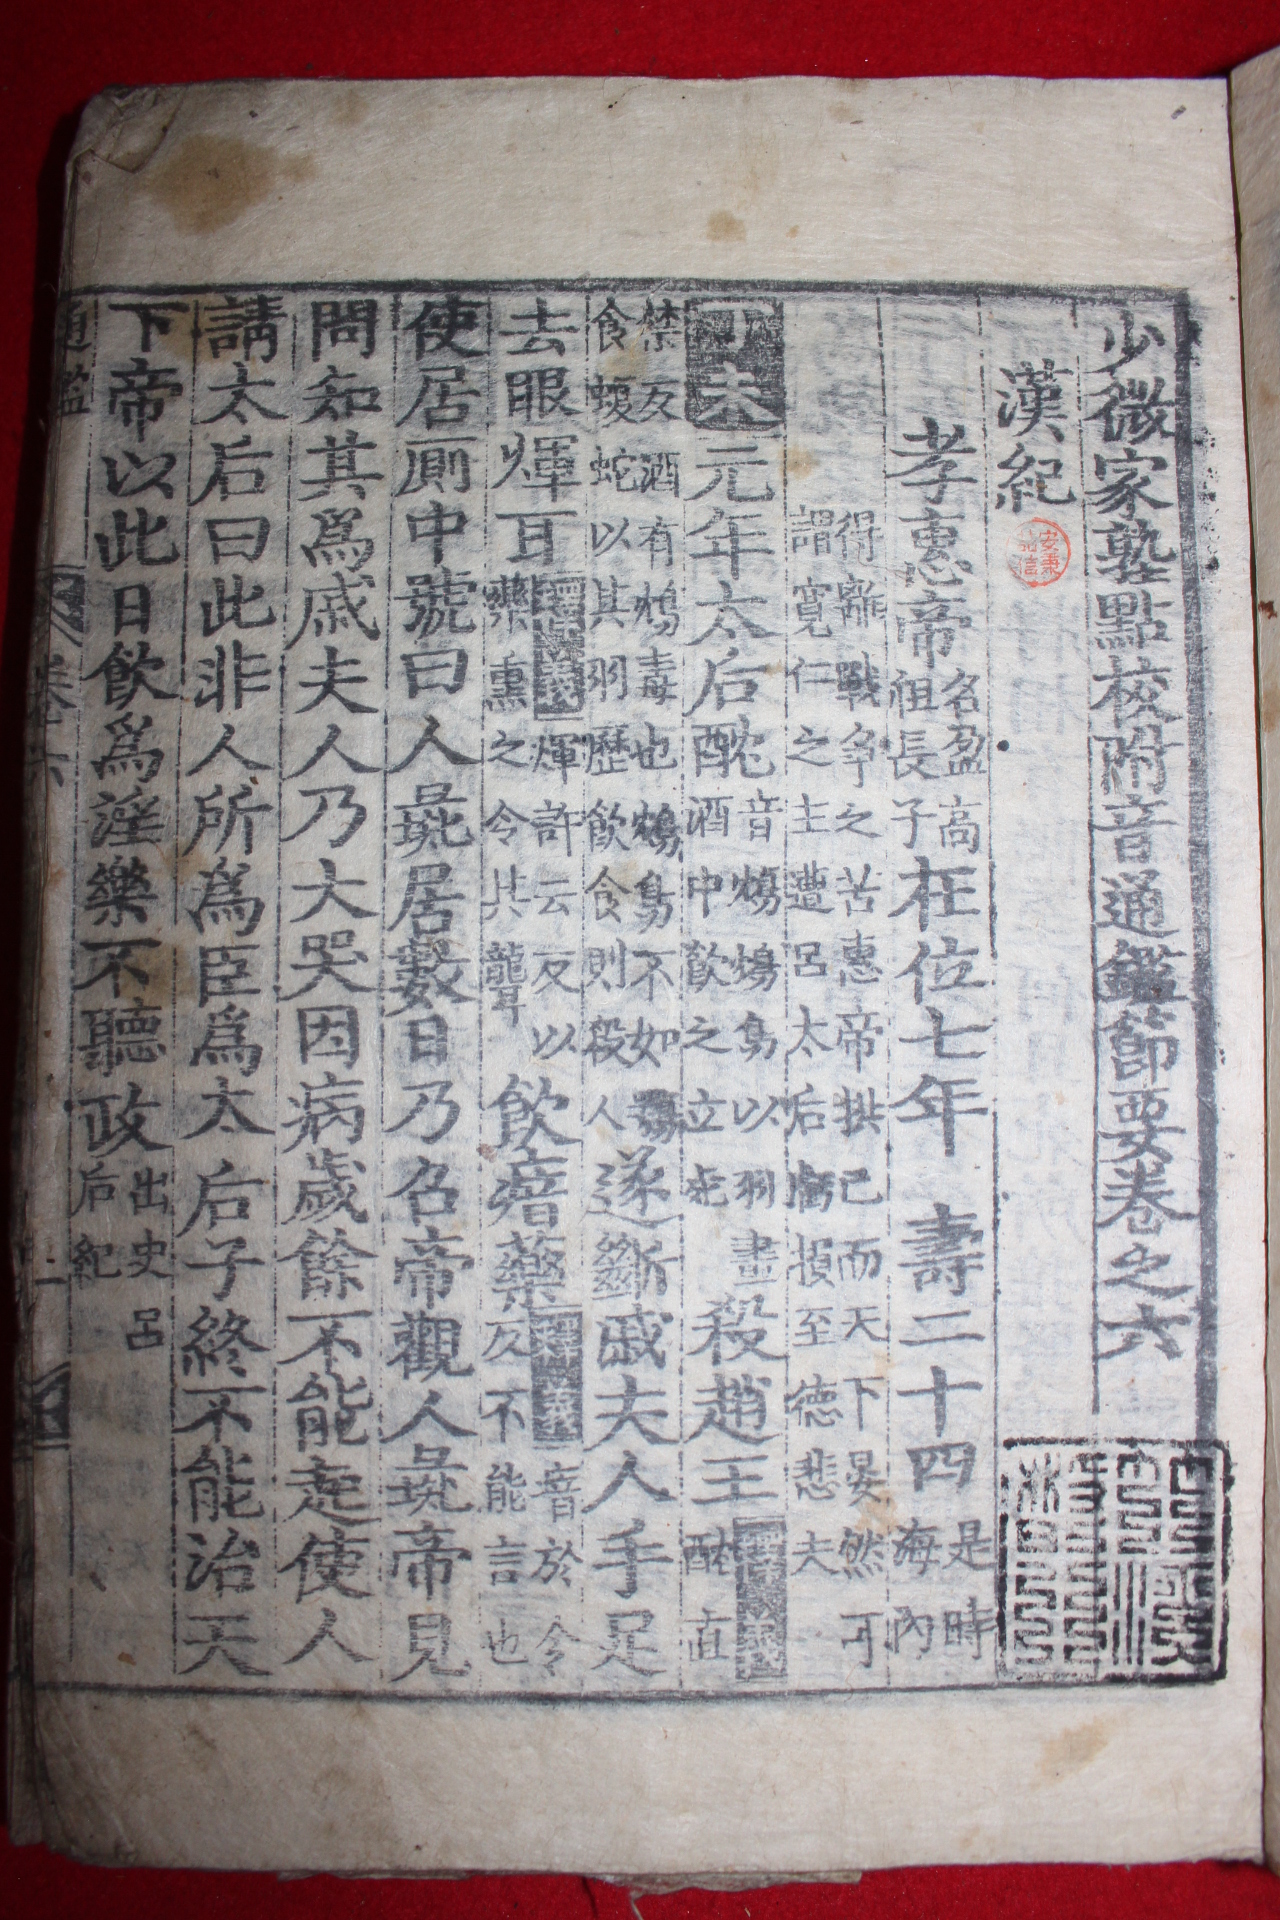 少微家塾點校附音通鑑節要卷之六
漢紀
孝惠帝名盈高祖長子在位七年 壽二十四是時海內
得離戰爭之苦惠帝拱己而天下晏然可
謂寬仁之主遭呂太后虧損至德悲夫
丁未元年太后酖音鴆鴆鳥以羽畫酒中飲之立死殺趙王酖直
禁反酒有鴆毒也鴆鳥不如
食蝮蛇以其羽歷飲食則殺人遂斷戚夫人手足
去眼煇耳煇許云反以藥熏之令其聾飲瘖藥音於今反不能言也
使居厠中號曰人彘居數日乃召帝觀人彘帝見
問知其爲戚夫人乃大哭因病歲餘不能起使人
請太后曰此非人所爲臣爲太后子終不能治天
下帝以此日飮爲淫樂不聽政出史呂后紀
通鑑 卷六 一